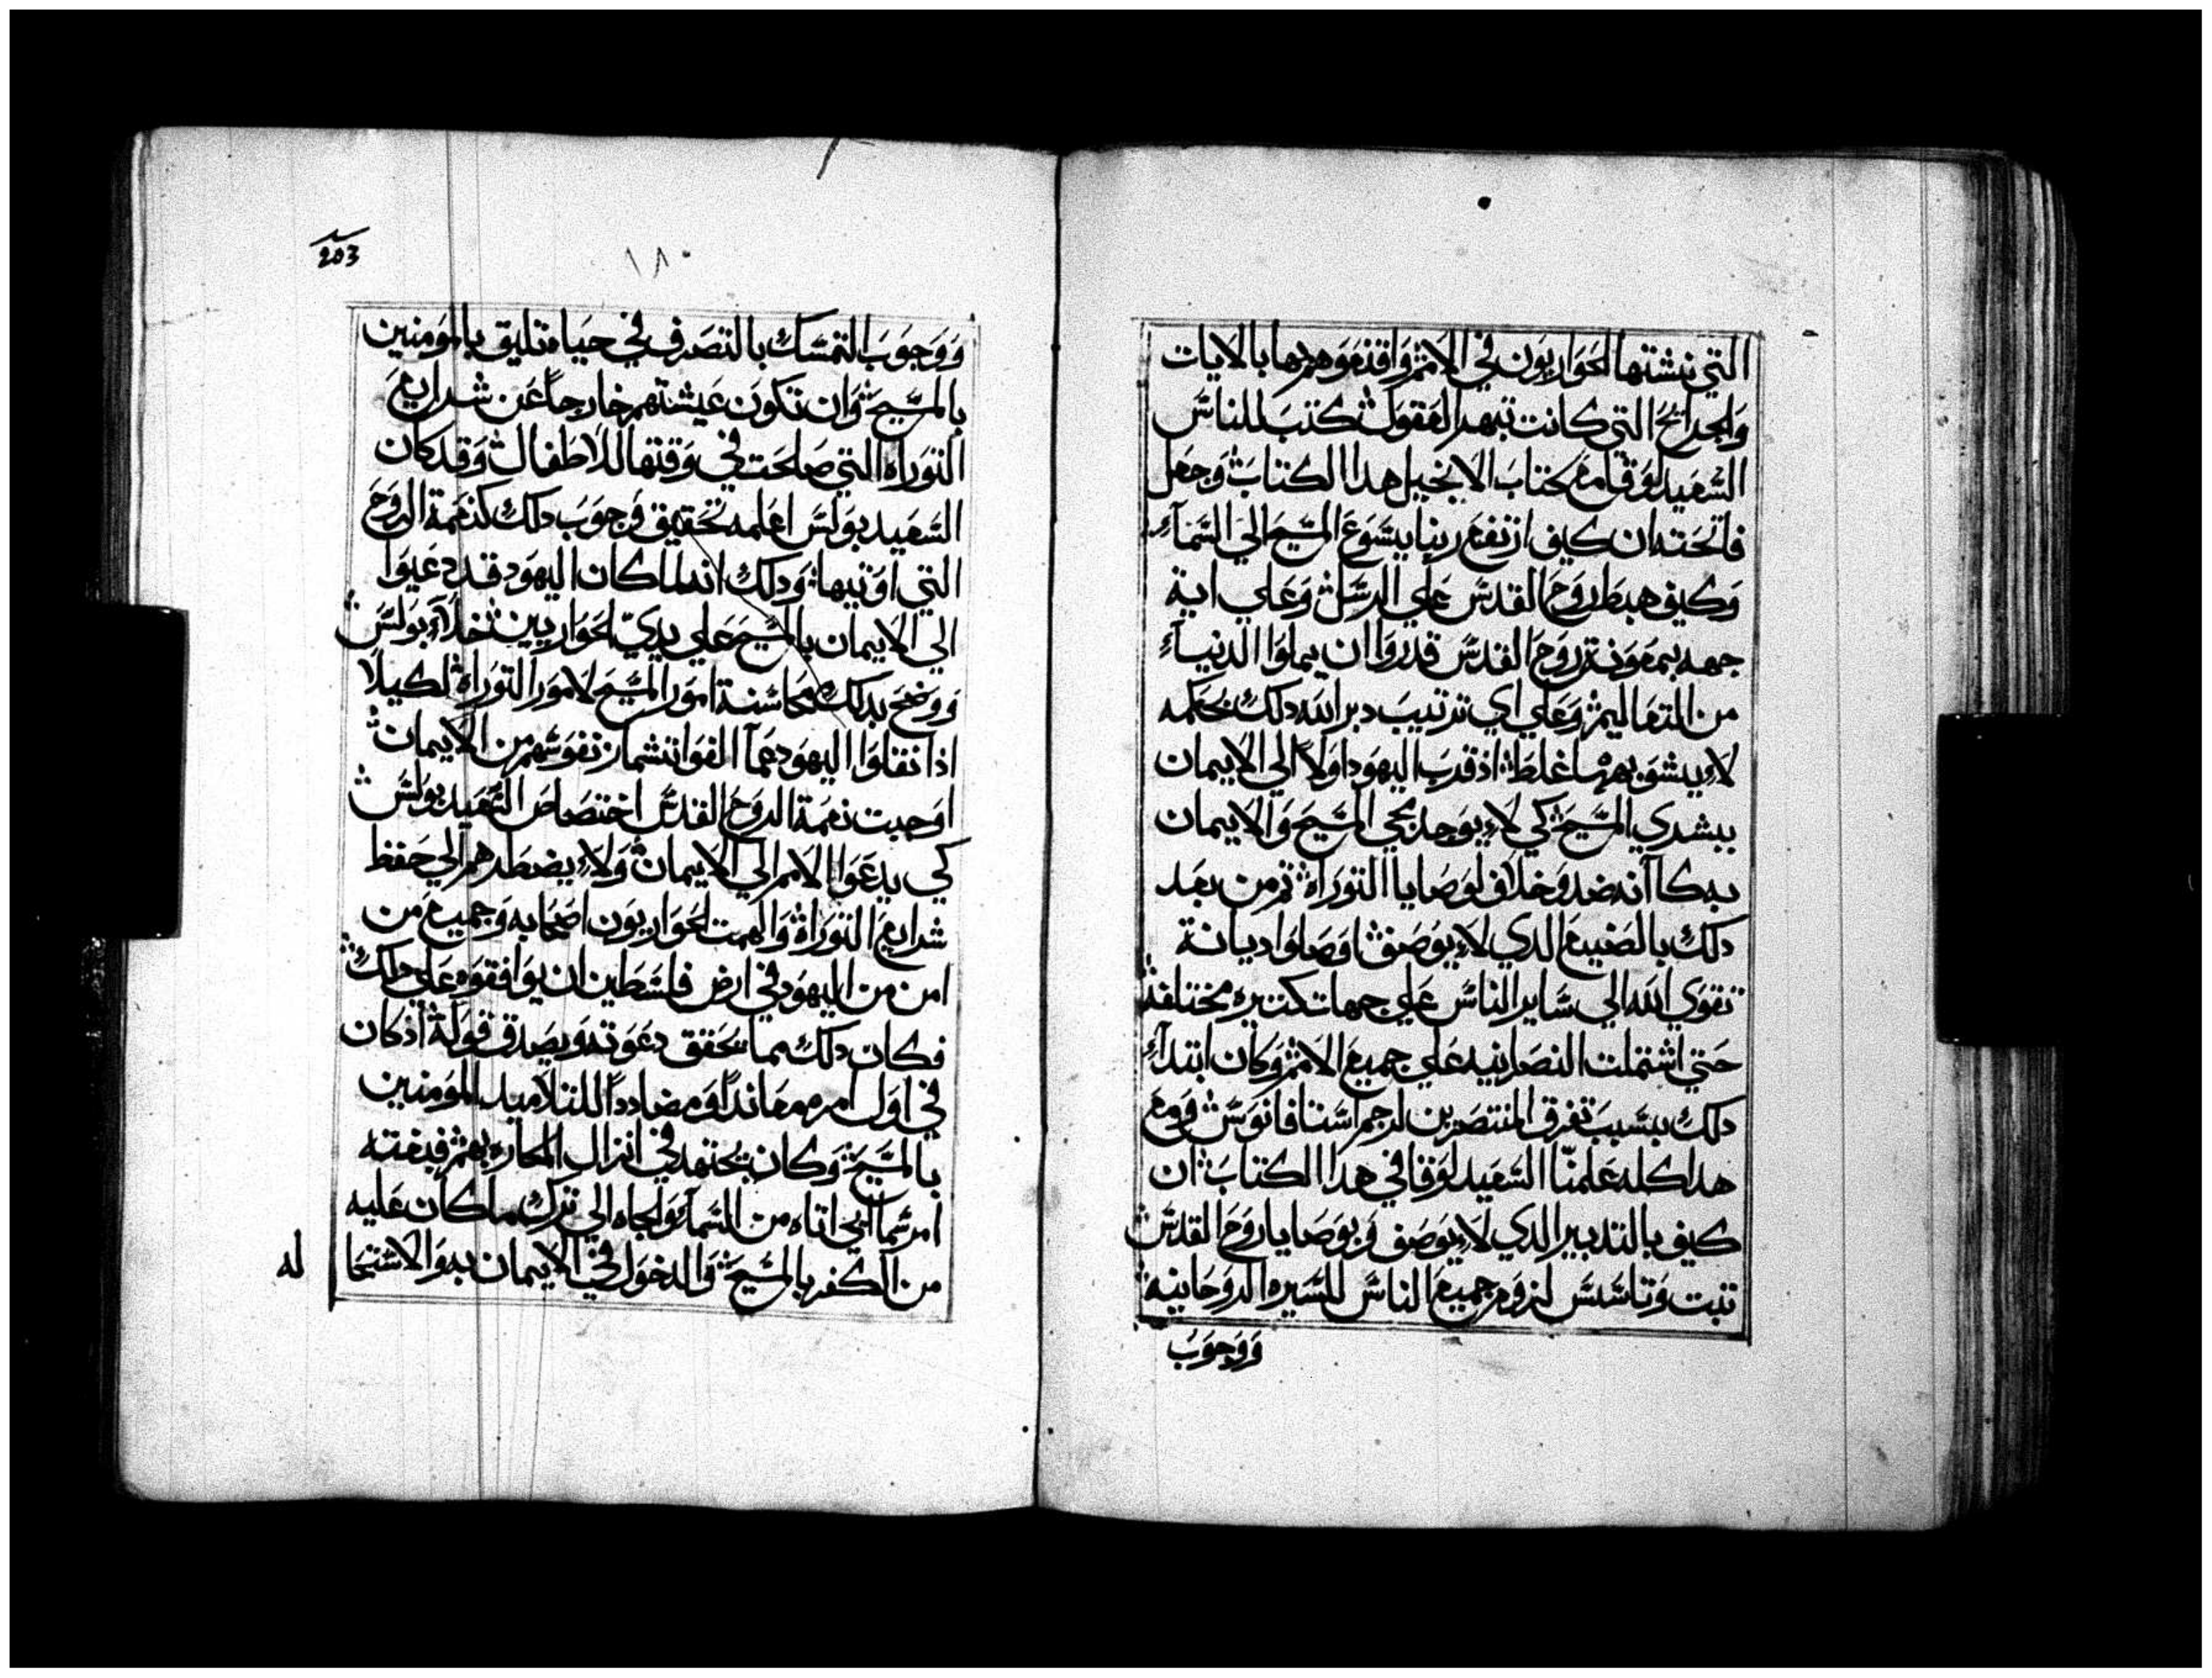 التي نشتها الحواريون في الامم واقنعوهم بها بالايات
والجرايح التي كانت تبهر العقول كتب للناس
السعيد لوقا مع كتاب الانجيل هدا الكتاب وجعل
فاتحته ان كيف ارتفع ربنا يسوع المسيح الي السماء
وكيف هبط روح القدس علي الرسل وعلي اية
جهه بمعونة روح القدس قدروا ان يملوا الدنيا
من التعاليم وعلي اي ترتيب دبر الله دلك بحكمه
لا يشوبها غلط اذ قرب اليهود اولا الي الايمان
ببشري المسيح كي لا يوجد بجي المسيح والايمان
به كانه ضد وخلاف لوصايا التوراه ثم من بعد
دلك بالصنيع الدي لا يوصف اوصلوا ديانة
تقوي الله الي ساير الناس علي جهات كتيره مختلفه
حتي اشتملت النصرانيه علي جميع الامم وكان ابتداء
دلك بسبب تفرق المنتصرين لرجم استافانوس ومع
هدا كله علمنا السعيد لوقا في هدا الكتاب ان
كيف بالتدبير الدي لا يوصف وبوصايا روح القدس
تبت وتاسس لزوم جميع الناس للسيره الروحانيه
ووجوب
203
١٨٠
ووجوب التمسك بالتصرف في حياة تليق بالمومنين
بالمسيح وان تكون عيشتهم خارجا عن شرايع
التوراه التي صلحت في وقتها للاطفال وقد كان
السعيد بولس اعلمه تحقيق وجوب دلك كنعمة الروح
التي اوتيها ودلك انه لما كان اليهود قد دعيوا
الي الايمان بالمسيح علي يدي الحواريين خلاء بولس
ووضح بدلك مجانسة امور المسيح لامور التوراه لكيلا
اذا نقلوا اليهود عما الفوا تشماز نفوسهم من الايمان
اوجبت نعمة الروح القدس اختصاص السعيد بولس
كي يدعوا الامم الي الايمان ولا يضطرهم الي حفظ
شرايع التوراه والهمت الحواريون اصحابه وجميع من
امن من اليهود في ارض فلسطين ان يوافقوه علي دلك
فكان دلك مما يحقق دعوته ويصدق قوله اذ كان
في اول امره معاندا ومضاددا للتلاميد المومنين
بالمسيح وكان يجتهد في انزال المكاره بهم فبغته
امر سمايي اتاه من السماء والجاه الي ترك ما كان عليه
من الكفر بالمسيح والدخول في الايمان به والاستحا
له